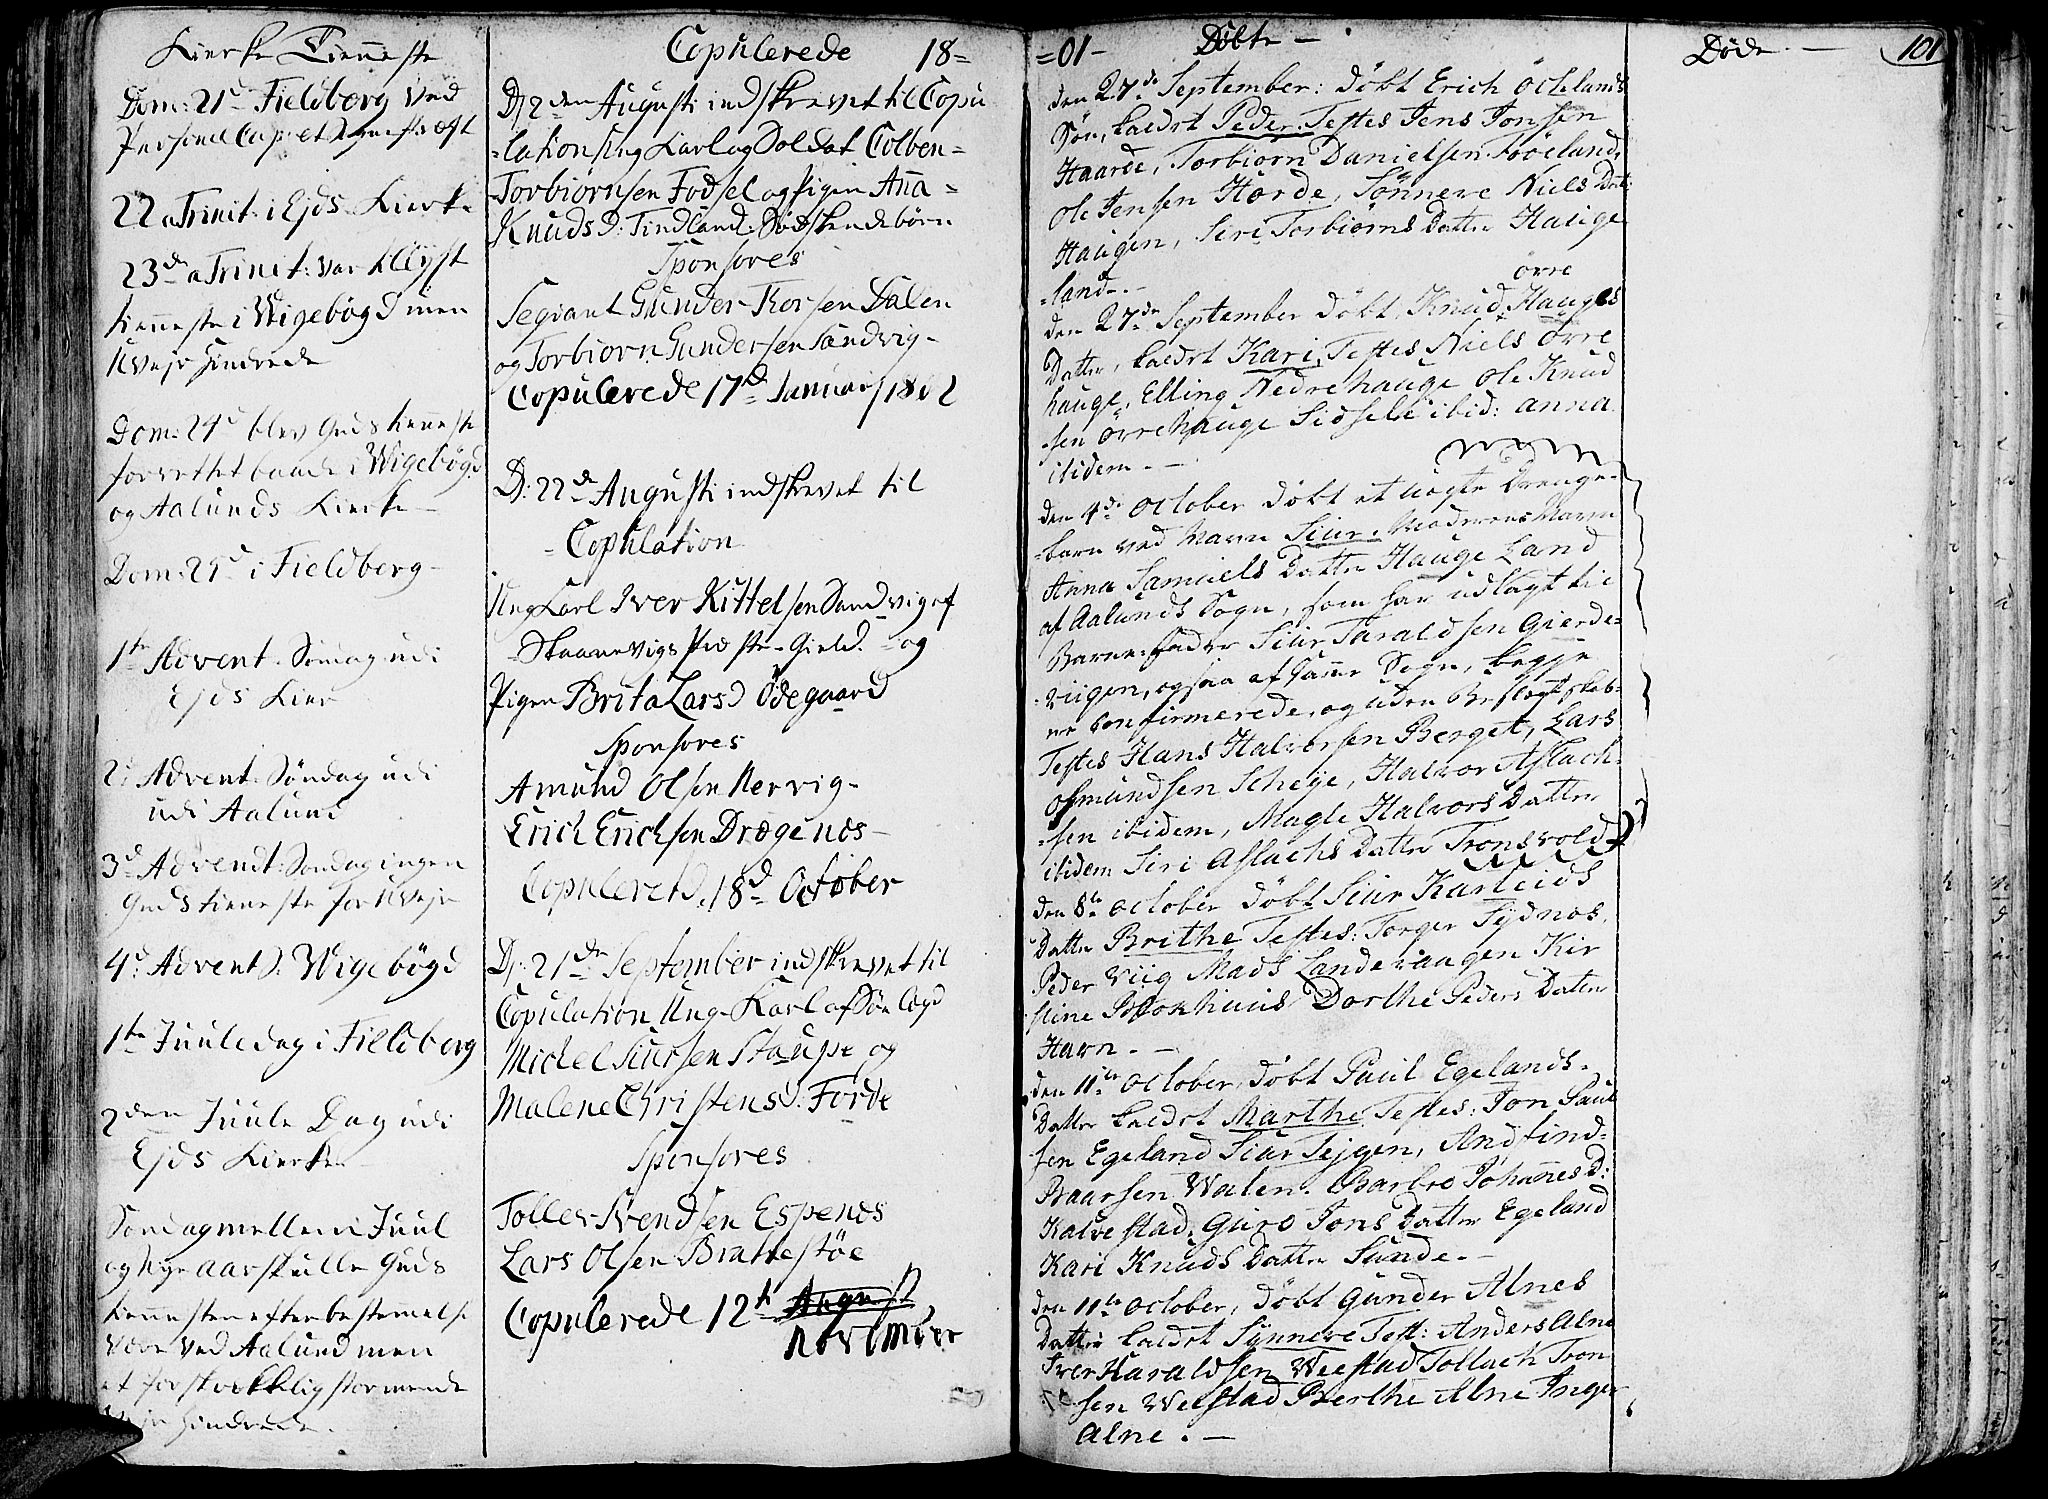 Kierke Tienneste
Dom: 21d Fieldberg ved
Personel Capel
22 a Trinit: i Ejds Kierke
23de a Trinit: var Klÿst
tienneste i Wigebøgd men
Uvejr hindrede
Dom: 24d blev Guds tienneste
forrettet baade i Wigebøgd
og Aalunds Kierke
Dom: 25d i Fieldberg
1te Advent Søndag udi
Ejds Kier
2d Advent Søndag udi
udi Aalund
3d Advendt: Søndag ingen
Guds tienneste for Uvejr
4d Advent S: Wigebøgd
1te Juule dag i Fieldberg
2den Juule Dag udi
Ejds Kierke
Søndag mellem Juul
og Nye aar skulle Guds
tiennesten efter bestemmelse
være ved Aalund men
et forskrækkelig stormende
Vejr hindrede.
Copulerede 18=
D: 2den Augusti indskrevet til Copu
=lation Ung Karl og Soldat Colben=
Torbiørnsen Fodsel og Pigen Anna=
Knuds D: Tindland: Sødskendebørn
Sponsores
Segiant Gunder Torsen Dalen
og Torbiørn Gundersen Sandvig-
Copulerede 17d Januarj 1802
D: 22de Augusti indskrevet til
=Copulation
Ung Karl Iver Kittelsen Sandvig af
Skaanevigs Præste-Gield - og
Pigen Brita Lars D Ødegaard
Sponsores
Amund Olsen Nervig-
Erich Erichsen Drægenæs-
Copuleret D. 18d October
D: 21de September indskrevet til
Copulation Ung Karl af Søe Legd
Michel Siursen Staupe og
Malene Christens D: Førde
Sponsores
Tollev Svendsen Espenæs
Lars Olsen Brattestøe
Copulerede 12te August
November
=01- Døbte -
den 27de September: døbt Erich Øchelands
Søn, kaldet Peder. Testes Jens Jonsen
Haarde, Torbiørn Danielsen Frøeland,
Ole Jensen Horde, Sønneve Niels Datt:
Haugen, Siri Torbiørns Datter Hauge
=land.-
den 27de September døbt Knud ørre Hauges
Datter, kaldet Kari, Testes Niels Ørre
hauge, Elling Nedrehauge Ole Knud
=sen ørrehauge Sidsele ibid: Anna
ibidem. -
den 4de October døbt et uægte Drenge-
=barn ved Navn Siur. Moderens Navn
Anna Samuels Datter Hauge Land
af Aalunds Sogn, som har udlagt til
Barne-fader Siur Taraldsen Gierde-
viigen, ogsaa af samme Sogn, begge
er Confirmerede, og uden Besl_gtskab-
Testes Hans Halvorsen Berget, Lars
Osmundsen Scheÿe, Halvor Aslach-
=sen ibidem, Magle Halvors Datter
ibidem Siri Aslachs Datter Tronsvold
den 8te October døbt Siur Karteids
Datter Brithe Testes: Torger Sydnæs,
Peder Viig Mads Landevaagen Kir
stine Blokhuus Dorthe Peders Datter
Havn. -
den 11te October, døbt Paul Egelands-
Datter kaldet Marthe Testes: Jon Paul
sen Egeland Siur Tejgen, Andfind-
Baarsen Walen. Barbro Johannes D:
Kalvestad, Guro Jons Datter Egeland
Kari Knuds Datter Sunde.-
den 11te October, døbt Gunder Alnes
Datter kaldet Synneve Test: Anders Alne
Iver Haraldsen Weestad Tollach Tron
sen Weestad Berthe Alne Inger
Alne. -
Døde. -
101